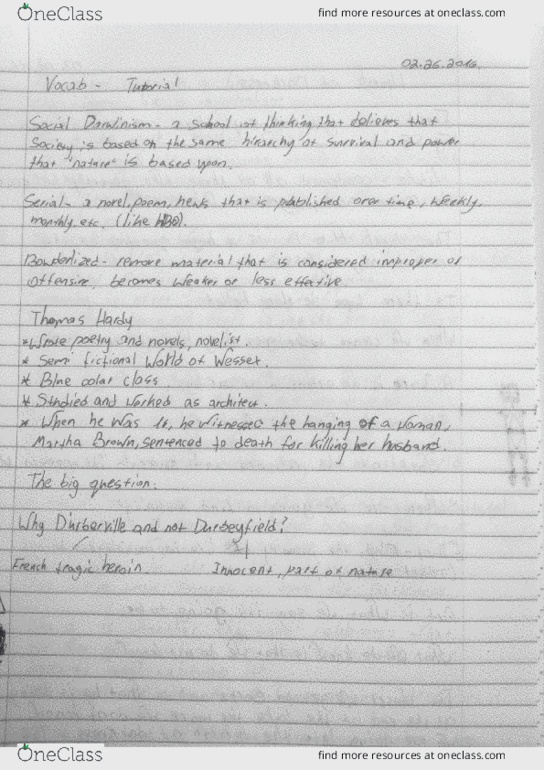 OneClass find more resources at oneclass.com
02.26.2016.
Vocab - Tutorial
Social Darwinism - a school of thinking that believes that
Society is based on the same hirarchy of survival and power
that "nature" is based upon.
Serial - a novel, poem, that is published over time, weekly,
monthly etc. (like HBO).
Bowderlized - remove material that is considered improper or
offensive, becomes weaker or less effective
Thomas Hardy
* Wrote poetry and novels, novelist.
* Semi fictional World of Wessex.
* Blue colar class.
* Studied and worked as architect.
* When he was 16, he witnessed the hanging of a woman,
Martha Brown, sentenced to death for killing her husband.
The big question:
Why D'urberville and not Durbeyfield?
French tragic heroin. Innocent, part of nature
OneClass find more resources at oneclass.com